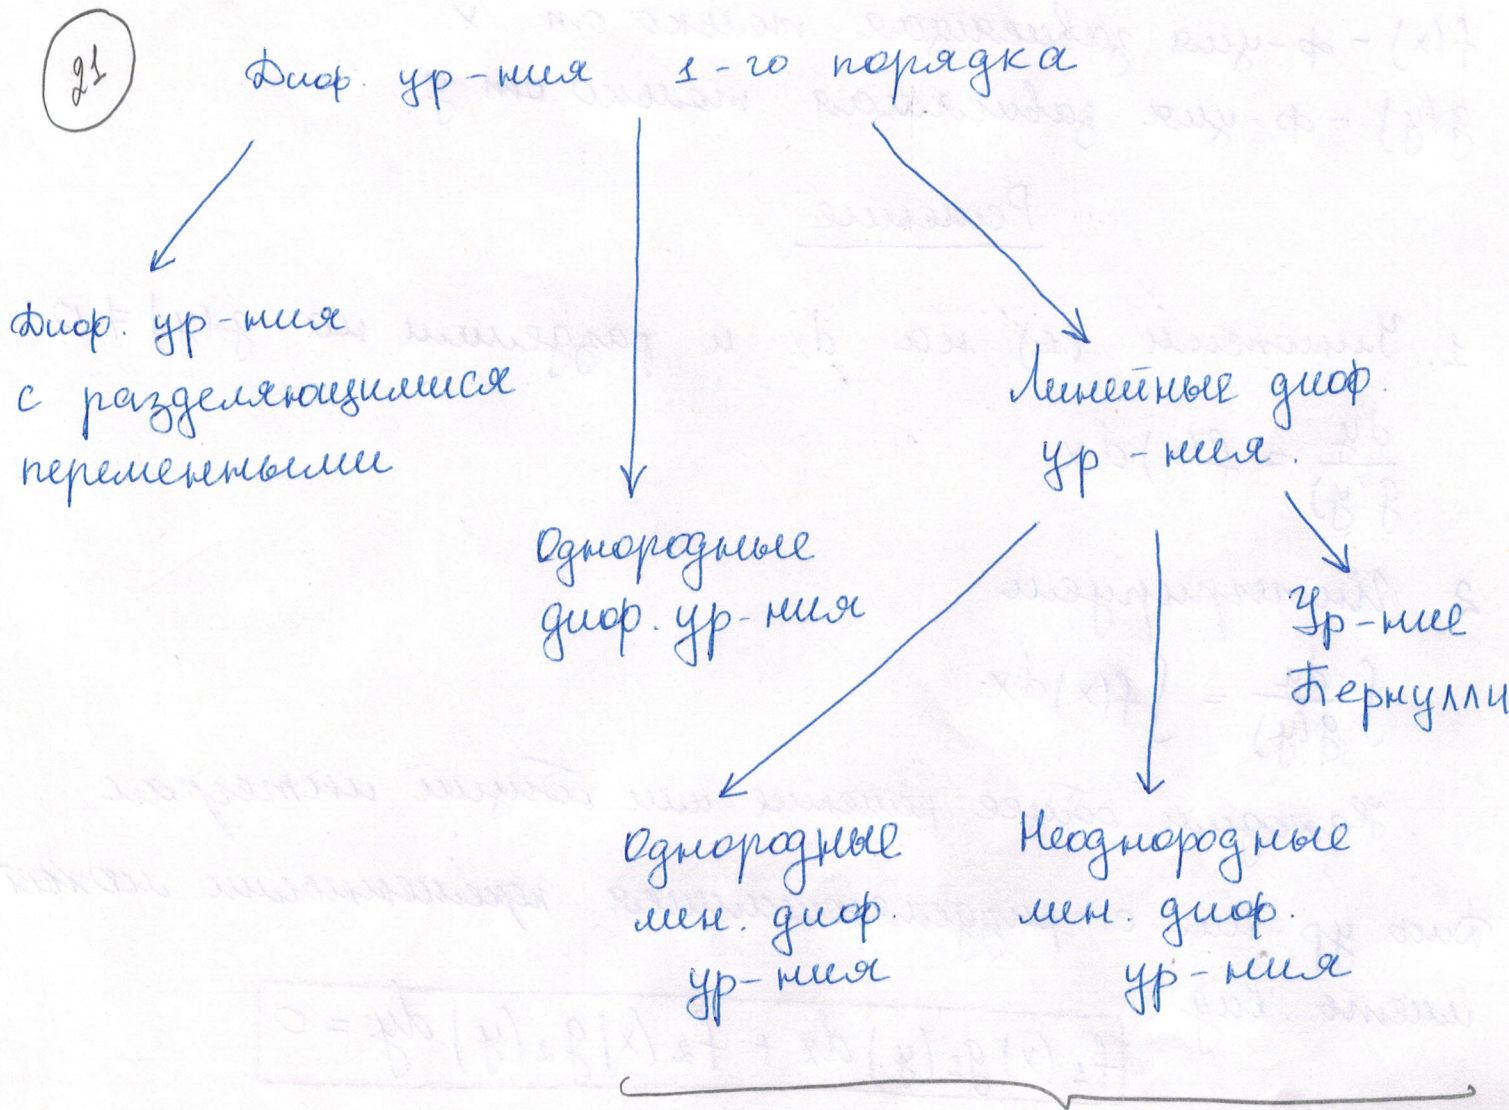 21
Диф. ур-ния 1-го порядка
Диф. ур-ния
с разделяющимися
переменными
Однородные
диф. ур-ния
Линейные диф.
ур-ния.
Ур-ние
Бернулли
Однородные
лин. диф.
ур-ния
Неоднородные
лин. диф.
ур-ния